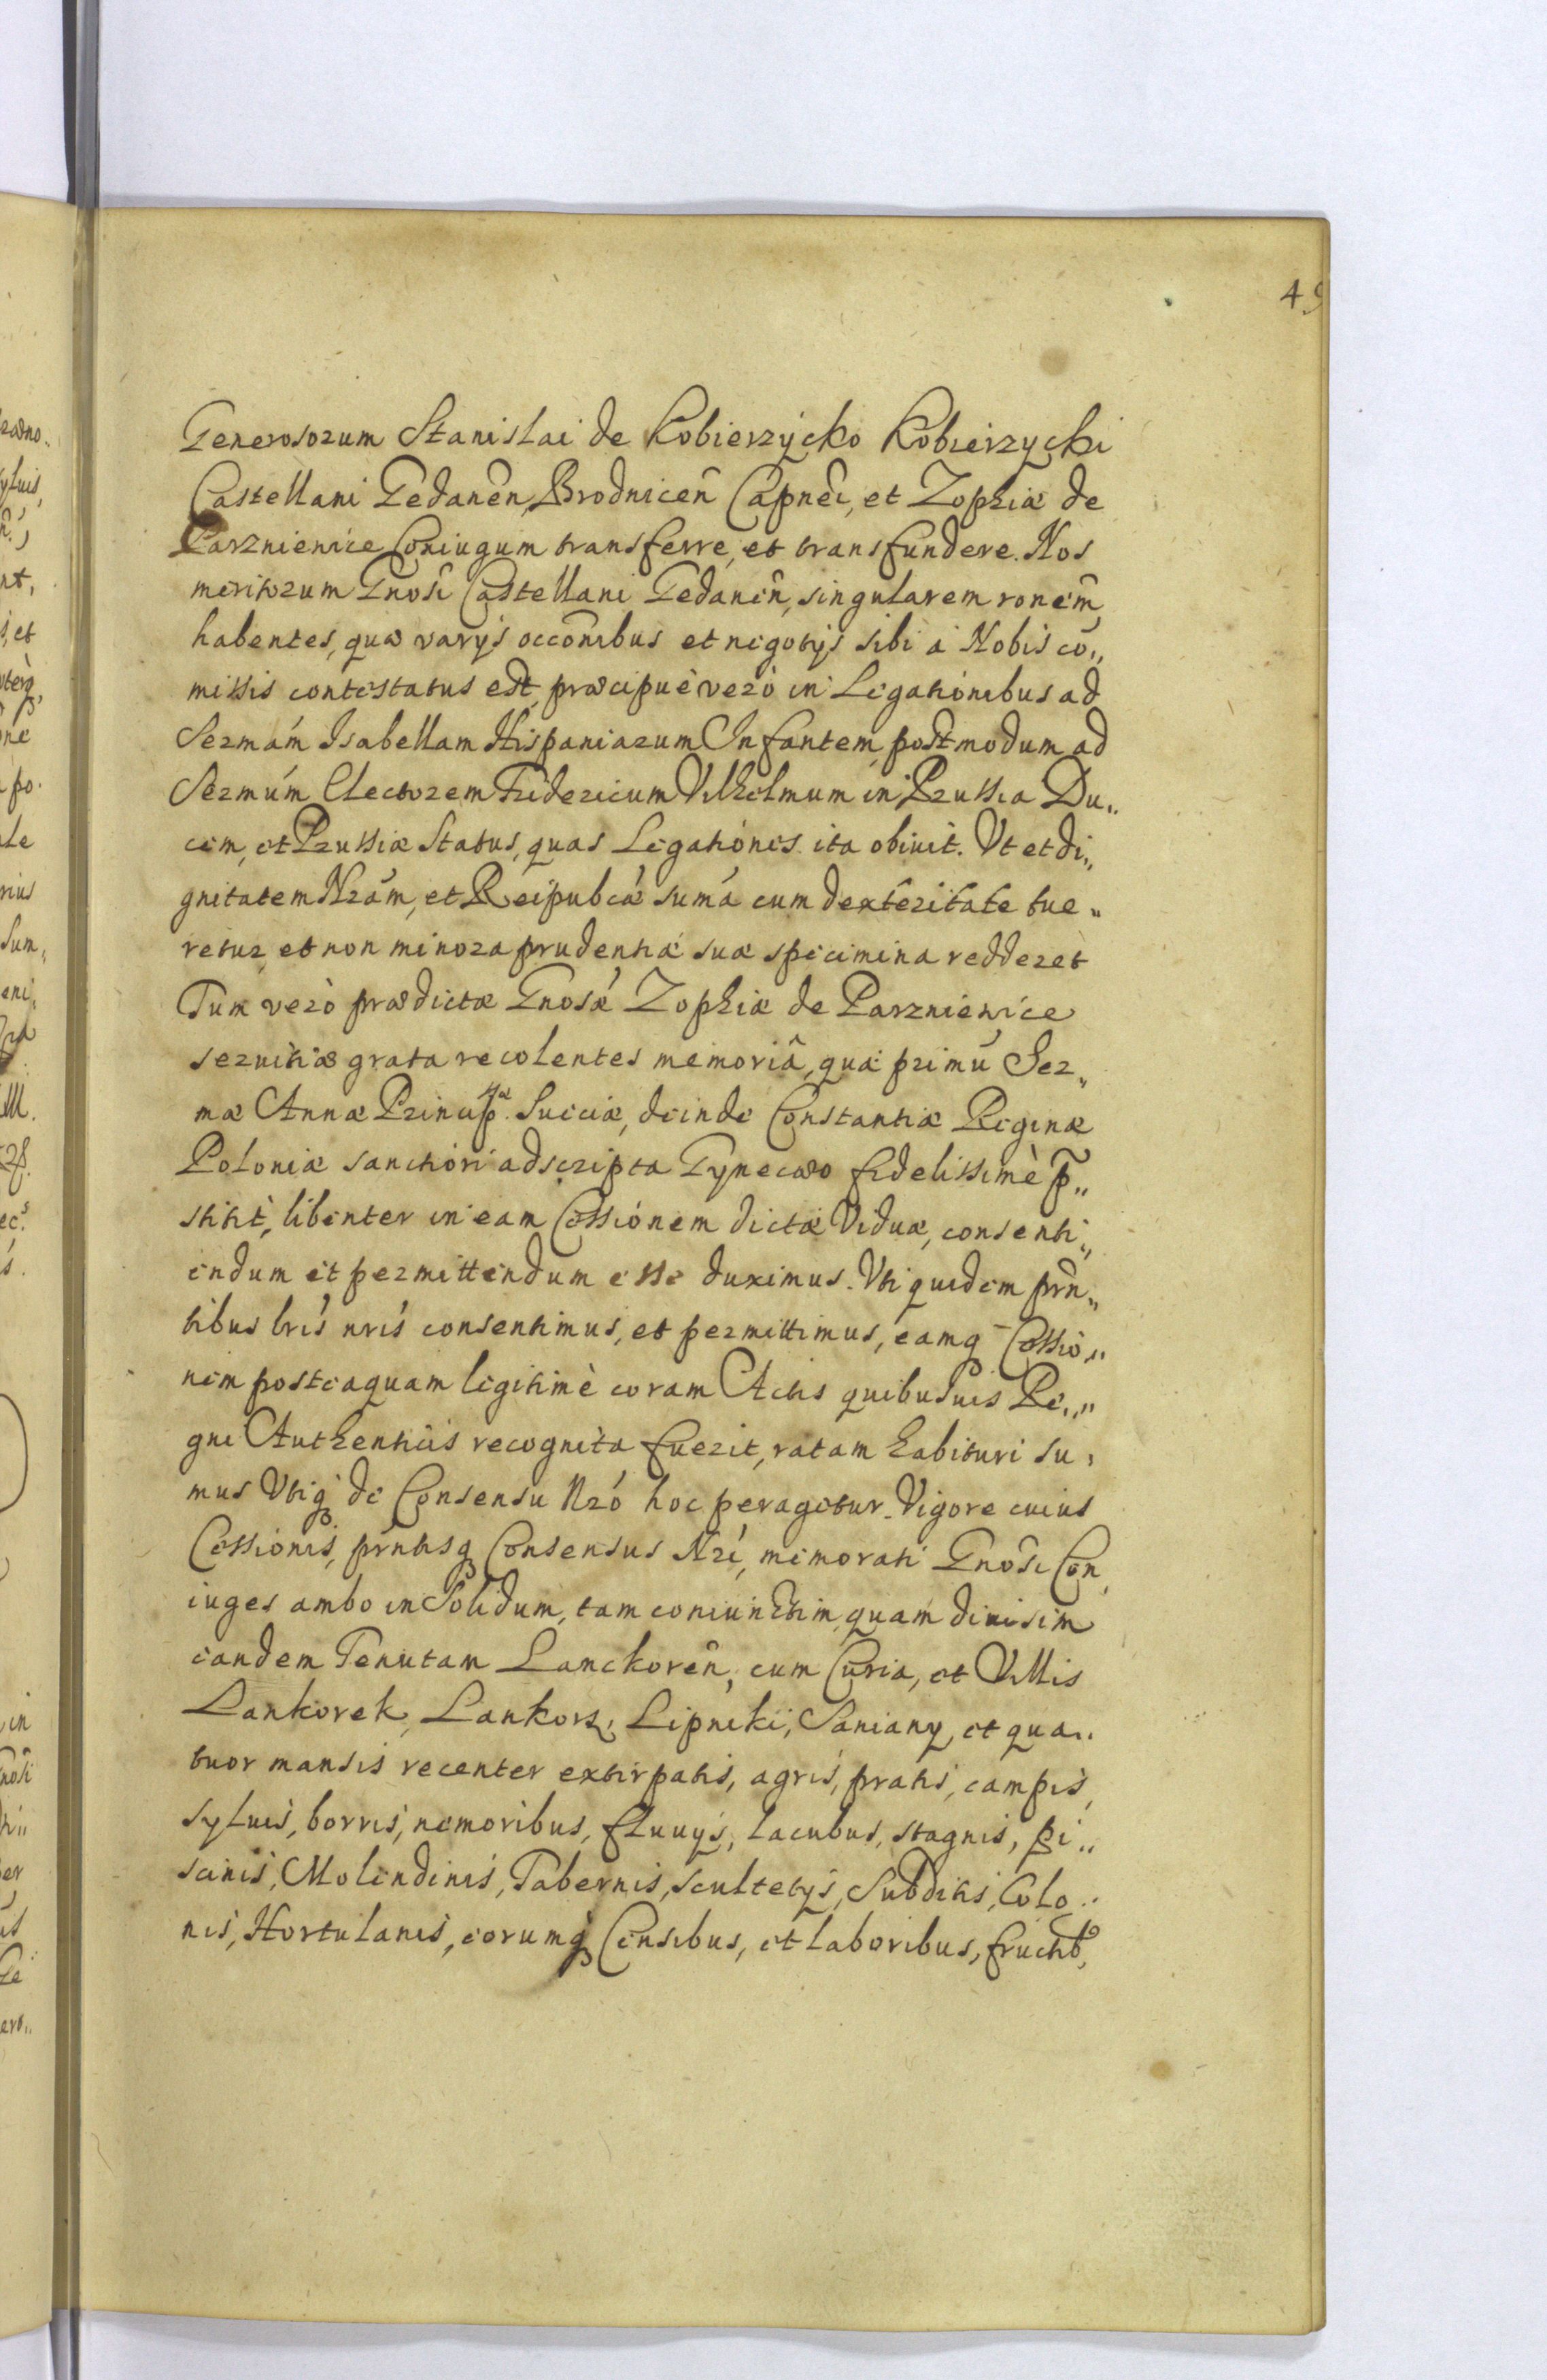 49
Generosorum Stanislai de Kobierzycko Kobierzycki
Castellani Gedanen̂, Brodnicen̂ Capnêi, et Zophiæ de
Parznienice Coniugum transferre, et transfundere. Nos
meritorum Gnosî Castellani Gedanen̂, singularem ronêm
habentes, quæ varijs occônibus et negotijs sibi à Nobis cō„
missis contestatus est, præcipuè verò in Legationibus ad
Sermám Isabellam Hispaniarum Infantem, postmodum ad
Sermúm Electorem Fridericum Vilhelmum in Prussia Du„
cem, et Prussiæ Status, quas Legationes ita obiuit. Vt et di„
gnitatem Nrám, et Reipubcæ sumá cum dexteritate tue„
retur, et non minora prudentiæ suæ specimina redderet
Tum verò prædictæ Gnosæ Zophiæ de Parznienice
seruitia grata recolentes memoriâ, quæ primū Ser„
mæ Annæ Princip. Sueciæ, deinde Constantiæ Reginæ
Poloniæ sanctiori adscripta Gynecæo fidelissimè p̃„
stitit, libenter in eam Cessionem dictæ Viduæ, consenti„
endum et permittendum esse duximus. Vti quidem prn̂„
tibus lrís nrís consentimus, et permittimus, eamq Cessio„
nem posteaquam legitimè coram Actis quibusuis Re„
gni Authenticis recognita fuerit, ratam habituri su„
mus Vtiq de Consensu Nró hoc peragetur. Vigore cuius
Cessionis, prńtisq Consensus Nrí, memorati Gnosî Con„
iuges ambo in Solidum, tam coniunctim quam diuisim
eandem Tenutam Lanckoren̂, cum Curia, et Villis
Lankorek, Lankorz, Lipniki, Saniany, et qua„
tuor mansis recenter extirpatis, agris, pratis, campis,
syluis, borris, nemoribus, fluuijs, lacubus, stagnis, pi„
scinis, Molendinis, Tabernis, scultetijs, Subditis, Colo„
nis, Hortulanis, eorumq Censibus, et laboribus, fructib9,